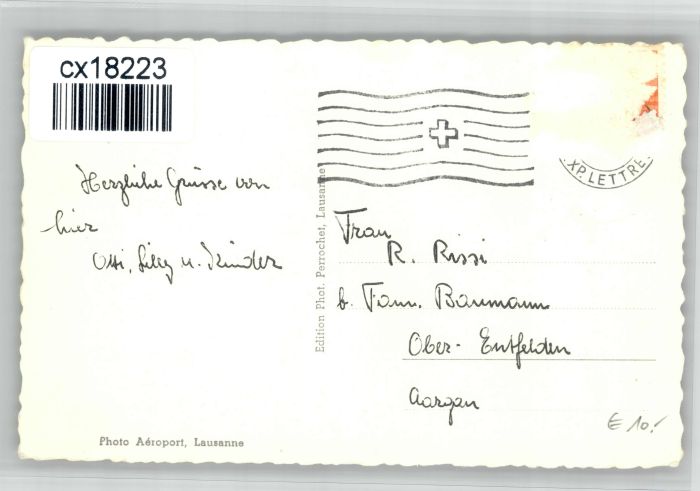 cx18223
XP. LETTRE
Herzliche Grüsse von
hier
Otti, Lilly u. Kinder
Edition Phot. Perrochet, Lausanne
Frau
R. Rissi
b. Fam. Baumann
Ober-Entfelden
Aargau
€ 10.-
Photo Aéroport, Lausanne